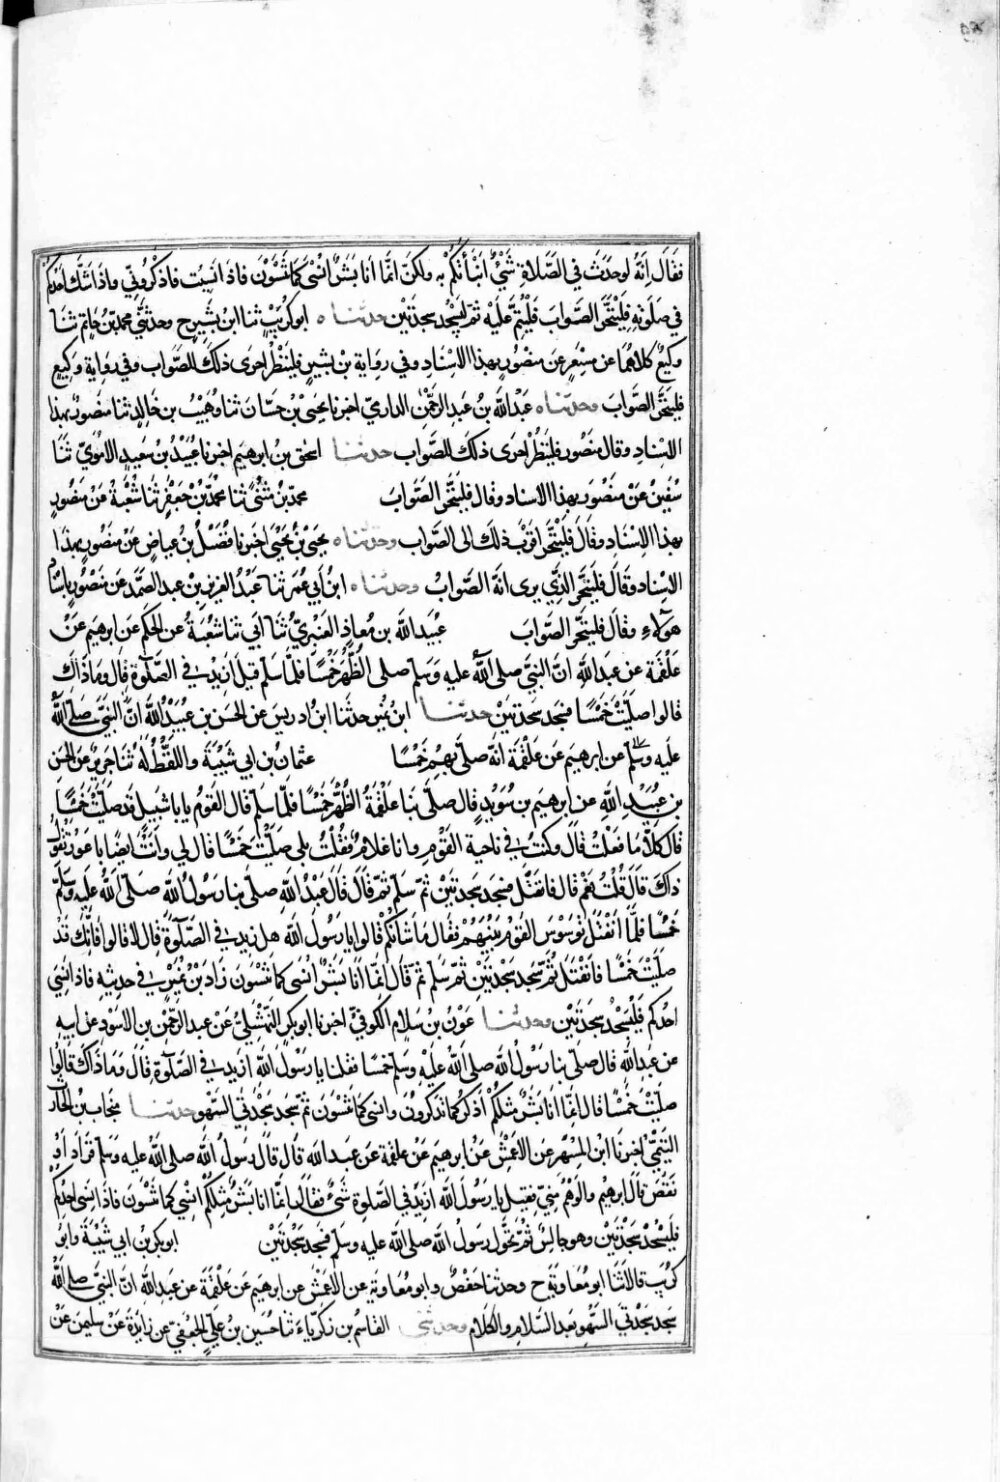 فقال انه لو حدث في الصلاة شيء انبأتكم به ولكن انما انا بشر انسى كما تنسون فاذا نسيت فاذكروني واذا شك احدكم
في صلوته فليتحر الصواب فليتم عليه ثم ليسجد سجدتين حدثناه ابو كريب ثنا ابن بشر ح وحدثني محمد بن حاتم ثنا
وكيع كلاهما عن مسعر عن منصور بهذا الاسناد وفي رواية بن بشر فلينظر احرى ذلك للصواب وفي رواية وكيع
فليتحر الصواب وحدثناه عبد الله بن عبد الرحمن الدارمي اخبرنا يحيى بن حسان ثنا وهيب بن خالد ثنا منصور بهذا
الاسناد وقال منصور فلينظر احرى ذلك للصواب حدثنا اسحق بن ابرهيم اخبرنا عبيد بن سعيد الاموي ثنا
سفين عن منصور بهذا الاسناد وقال فليتحر الصواب محمد بن مثنى ثنا محمد بن جعفر ثنا شعبة عن منصور
بهذا الاسناد وقال فليتحر اقرب ذلك الى الصواب وحدثناه يحيى بن يحيى اخبرنا فضيل بن عياض عن منصور بهذا
الاسناد وقال فليتحر الذي يرى انه الصواب وحدثناه ابن ابي عمر ثنا عبد العزيز بن عبد الصمد عن منصور باسناد
هولاء وقال فليتحر الصواب عبيد الله بن معاذ العنبري ثنا ابي ثنا شعبة عن الحكم عن ابرهيم عن
علقمة عن عبد الله ان النبي صلى الله عليه وسلم صلى الظهر خمسا فلما سلم قيل ازيد في الصلوة قال وما ذاك
قالوا صليت خمسا فسجد سجدتين حدثنا ابن نمير حدثنا ابن ادريس عن الحسن بن عبيد الله ان النبي صلى الله
عليه وسلم عن ابرهيم عن علقمة انه صلى بهم خمسا عثمان بن ابي شيبة واللفظ له ثنا جرير عن الحسن
بن عبيد الله عن ابرهيم بن سويد قال صلى بنا علقمة الظهر خمسا فلما سلم قال القوم يا با شبيل قد صليت خمسا
قال كلا ما فعلت قال وكنت في ناحية القوم وانا غلام فقلت بلى صليت خمسا قال لي وانت ايضا يا عور تقول
ذاك قال قلت نعم قال فانفتل فسجد سجدتين ثم سلم ثم قال قال عبد الله صلى بنا رسول الله صلى الله عليه وسلم
خمسا فلما انفتل توسوس القوم بينهم فقال ما شأنكم قالوا يا رسول الله هل زيد في الصلوة قال لا قالوا فانك قد
صليت خمسا فانفتل ثم سجد سجدتين ثم سلم ثم قال انما انا بشر انسى كما تنسون زاد بن نمير في حديثه فاذا نسي
احدكم فليسجد سجدتين وحدثنا عون بن سلام الكوفي اخبرنا ابو بكر النهشلي عن عبد الرحمن بن الاسود عن ابيه
عن عبد الله قال صلى بنا رسول الله صلى الله عليه وسلم خمسا فقلنا يا رسول الله ازيد في الصلوة قال وما ذاك قالوا
صليت خمسا قال انما انا بشر مثلكم اذكر كما تذكرون وانسى كما تنسون ثم سجد سجدتي السهو حدثنا منجاب بن الحارث
التميمي اخبرنا ابن المسهر عن الاعمش عن ابرهيم عن علقمة عن عبد الله قال قال رسول الله صلى الله عليه وسلم فزاد او
نقص قال ابرهيم والوهم مني فقيل يا رسول الله ازيد في الصلوة شيء فقال انما انا بشر مثلكم انسى كما تنسون فاذا نسى احدكم
فليسجد سجدتين وهو جالس ثم تحول رسول الله صلى الله عليه وسلم فسجد سجدتين ابو بكر بن ابي شيبة وابو
كريب قالا ثنا ابو معاوية ح وحدثنا حفص وابو معاوية عن الاعمش عن ابرهيم عن علقمة عن عبد الله ان النبي صلى الله
سجد سجدتي السهو بعد السلام والكلام وحدثني القاسم بن زكرياء ثنا حسين بن علي الجعفي عن زايدة عن سليمن عن